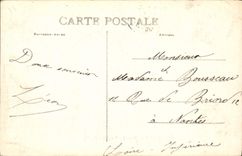 CARTE POSTALE
Doux souvenir
Léon
Monsieur et
Madame Bousseau
Rue de Briord
à Nantes
Loire-Inférieure